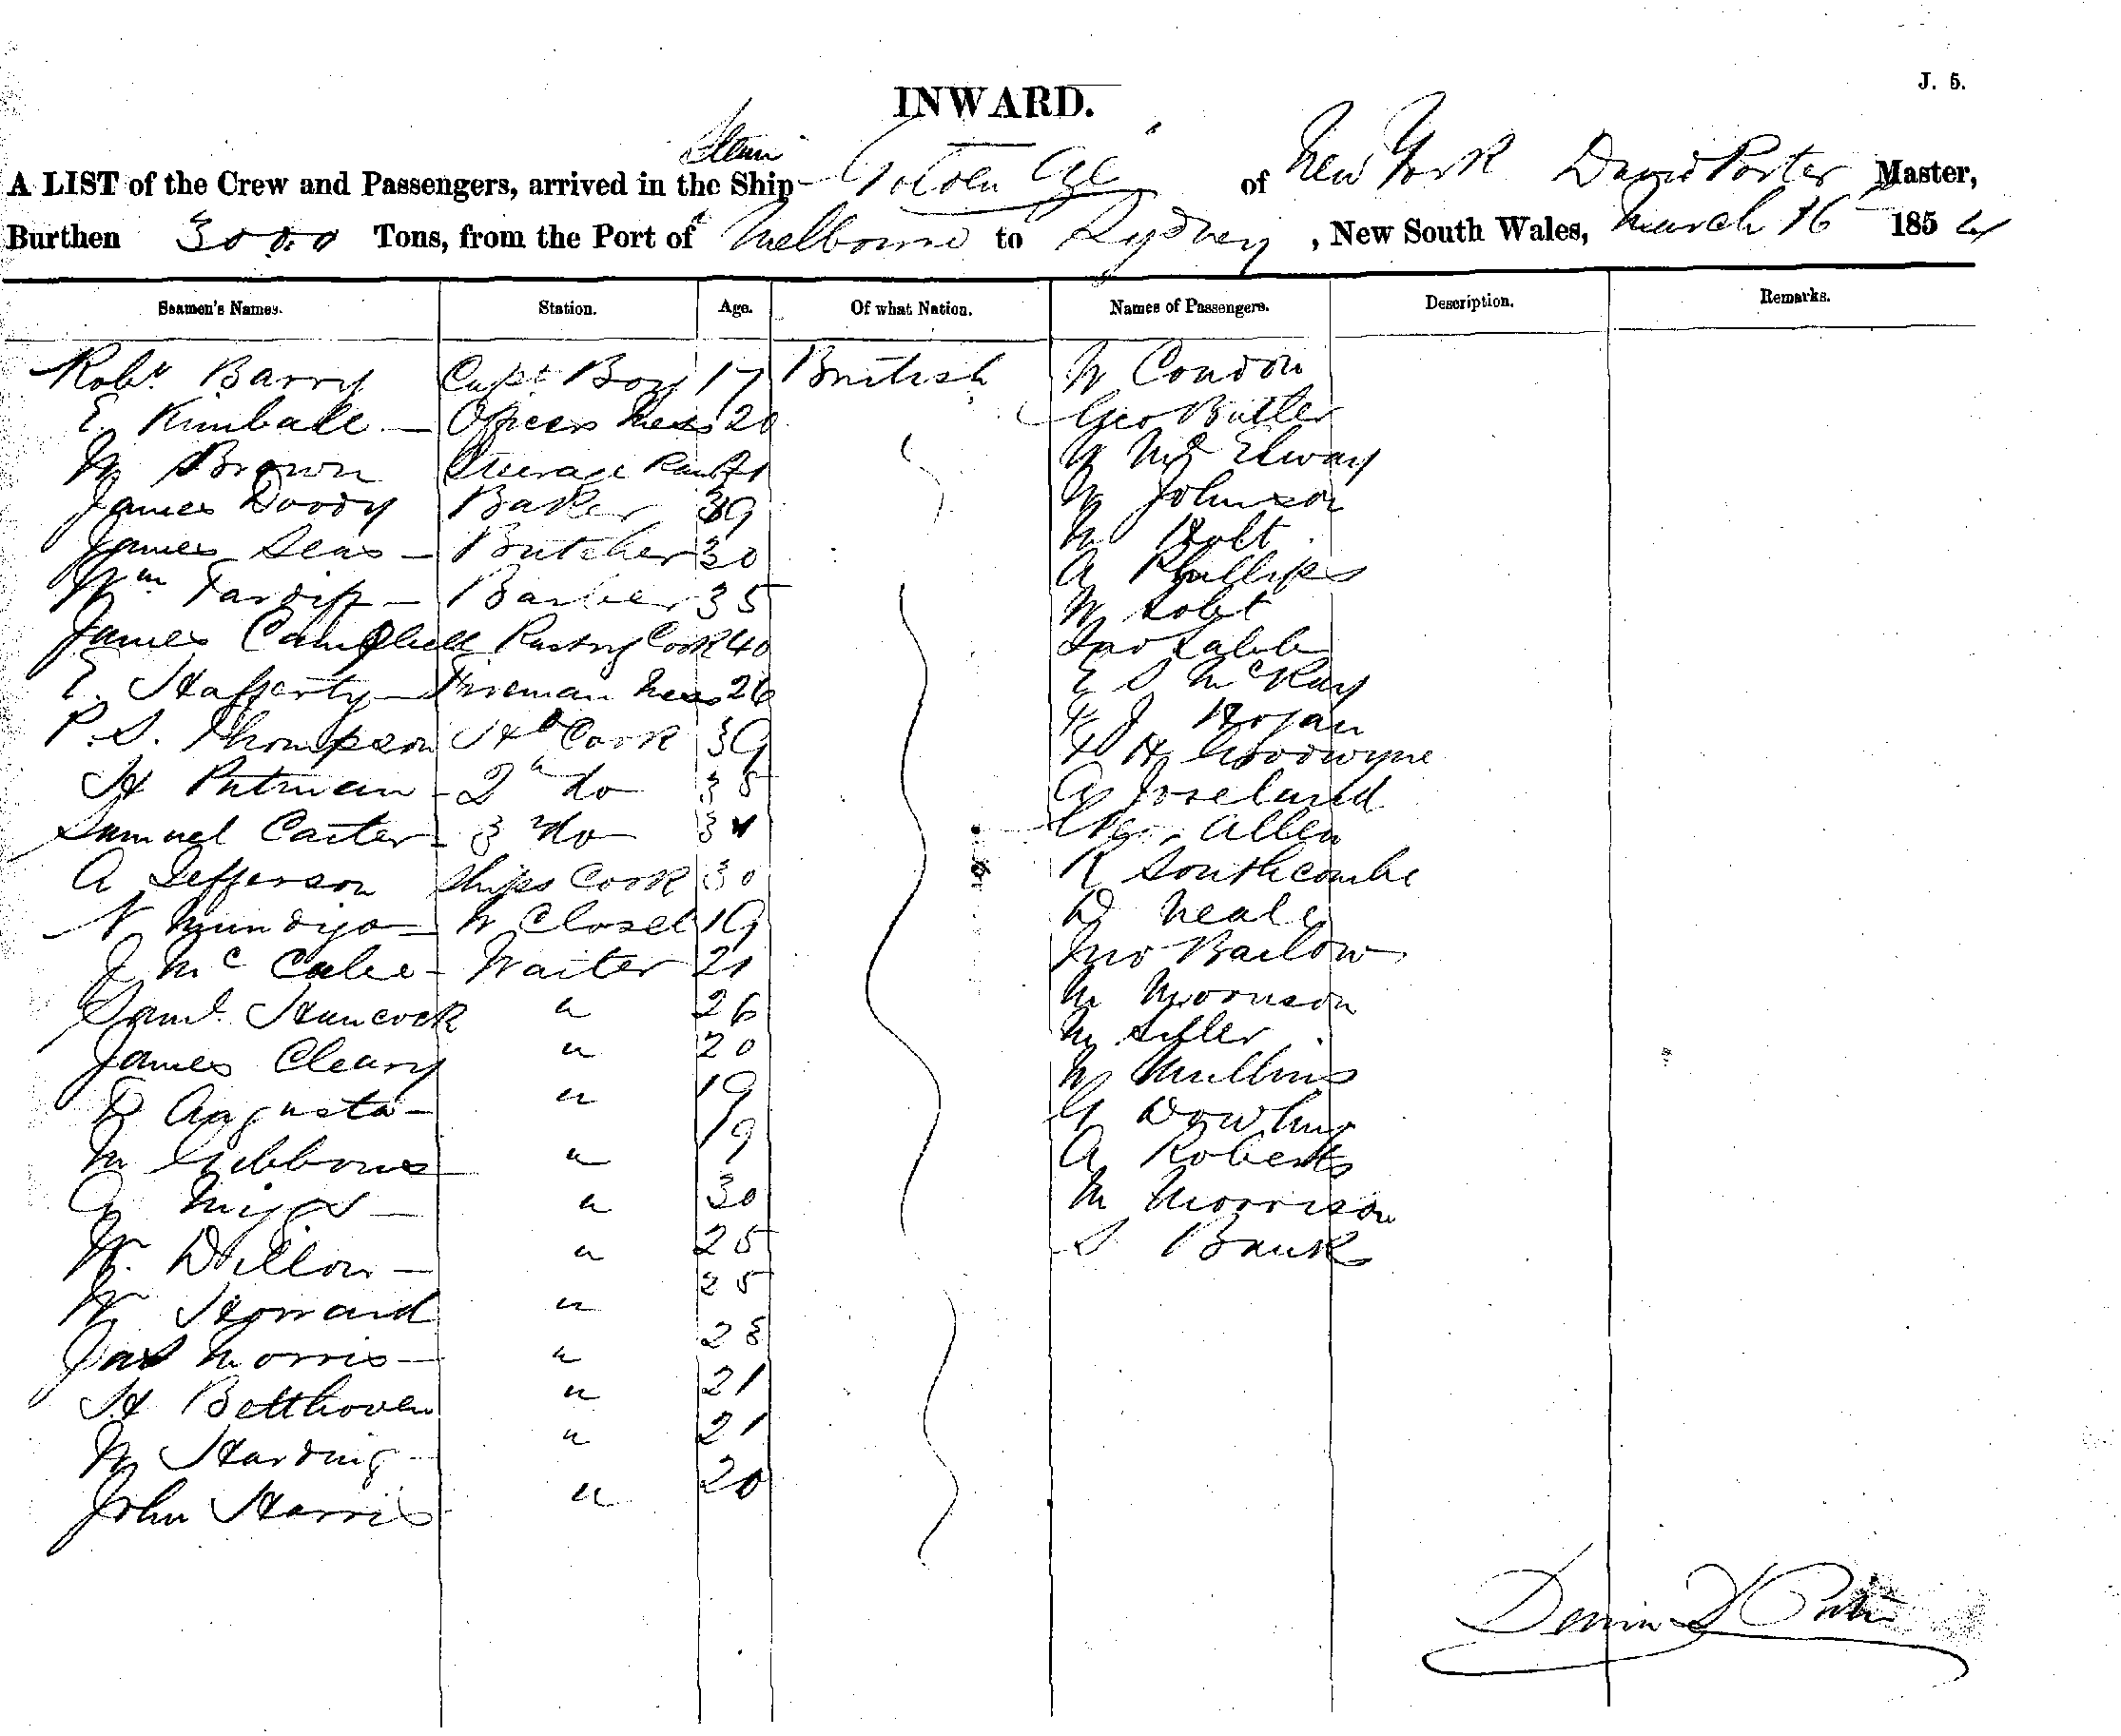 J. 5.
INWARD.
Steam
A LIST of the Crew and Passengers, arrived in the Ship Golden Age of New York David Porter Master,
Burthen 3000 Tons, from the Port of Melbourne to Sydney, New South Wales, March 16 1854
Seamen's Names. Station. Age. Of what Nation. Names of Passengers. Description. Remarks.
Robt Barry Capt Boy 17 British W Condon
E. Kimball Officers Mess 20 Geo Butler
W Brown Steerage 21 W Mc Elway
James Doody Baker 39 W Johnson
James Seas Butcher 30 M Holt
Wm Tardif Barber 35 A Phillips
James Campbell Pastry Cook 40 W
E. Hafferty Fireman Mess 26 E S McKay
P. S. Thompson Hd Cook 39 F J Hogan
H Putman 2d do 35 H Goodwyne
Samuel Carter 3 do A Joseland
A Jefferson Ships Cook 30 Allen
N W Closet 19 R Southcombe
J McCabe Waiter 21 D Neale
Saml. Hancock " 26 Jno Barlow
James Cleary " 20 M Moornson
D Augusta " 19 M
M Gibbons " 19 W Mullins
" 30 G Dowling
W. Dillon " 25 A Roberts
W Howard " 25 M Morrison
Jas Morris " 28 S Banks
H Betthoven " 21
W Harding " 21
John Harris " 20
David D Porter